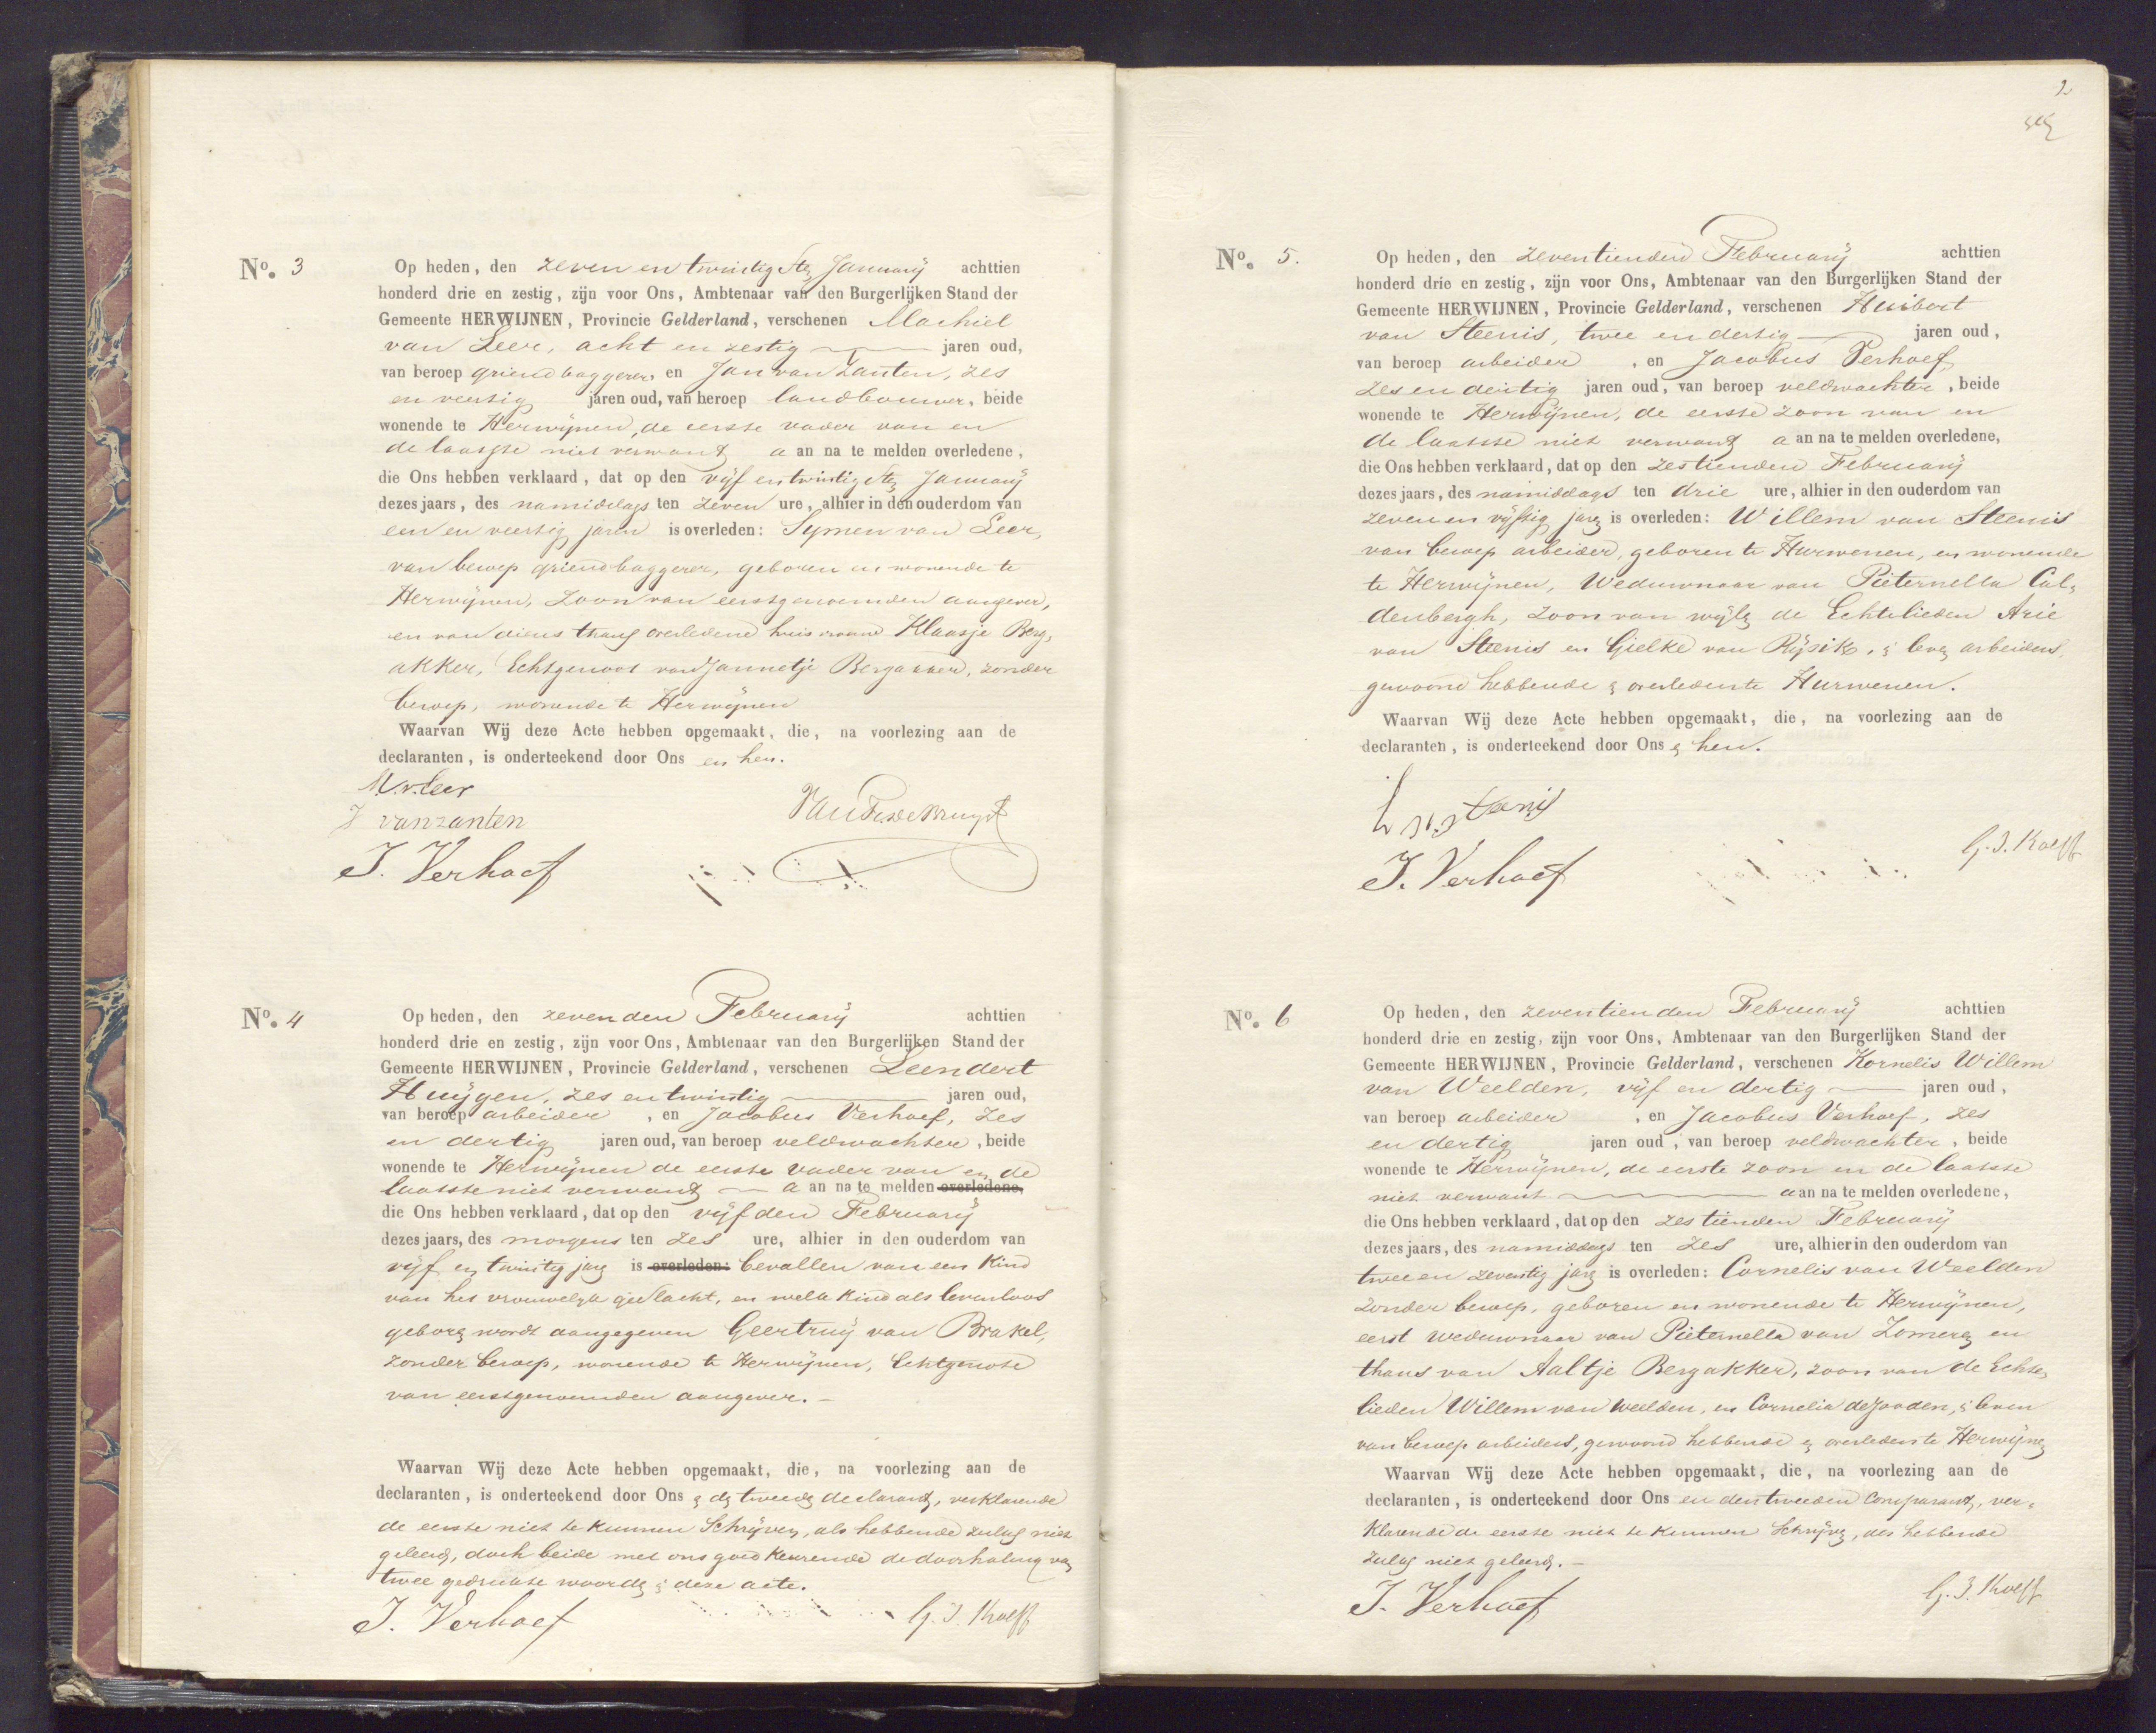 No. 3
Op heden, den zeven en twintigsten Januarij achttien
honderd drie en zestig, zijn voor Ons, Ambtenaar van den Burgerlijken Stand der
Gemeente HERWIJNEN, Provincie Gelderland, verschenen Machiel
van Leer, acht en zestig jaren oud,
van beroep griendbaggerer, en Jan van Zanten, zes
en veertig jaren oud, van beroep landbouwer, beide
wonende te Herwijnen, de eerste vader van en
de laatste niet verwant aan na te melden overledene,
die Ons hebben verklaard, dat op den vijf en twintigsten Januarij
dezes jaars, des namiddags ten zeven ure, alhier in den ouderdom van
een en veertig jaren is overleden: Symen van Leer,
van beroep griendbaggerer, geboren en wonende te
Herwijnen, Zoon van eerstgenoemden aangever,
en van diens thans overledene huisvrouw Klaasje Berg,
akker, Echtgenoot van Jannetje Bergakker, zonder
beroep, wonende te Herwijnen
Waarvan Wij deze Acte hebben opgemaakt, die, na voorlezing aan de
declaranten, is onderteekend door Ons en hen.
M.v.Leer
J vanzanten
J. Verhoef
No. 4
Op heden, den zevenden Februarij achttien
honderd drie en zestig, zijn voor Ons, Ambtenaar van den Burgerlijken Stand der
Gemeente HERWIJNEN, Provincie Gelderland, verschenen Leendert
Huijgen, zes en twintig jaren oud,
van beroep arbeider, en Jacobus Verhoef, zes
en dertig jaren oud, van beroep veldwachter, beide
wonende te Herwijnen de eerste vader van en de
laatste niet verwant aan na te melden overledene,
die Ons hebben verklaard, dat op den vijfden Februarij
dezes jaars, des morgens ten zes ure, alhier in den ouderdom van
vijf en twintig jaren is overleden: bevallen van een Kind
van het vrouwelijk geslacht, en welk Kind als levenloos
geboren wordt aangegeven Geertruij van Brakel,
zonder beroep, wonende te Herwijnen, Echtgenote
van eerstgenoemden aangever.-
Waarvan Wij deze Acte hebben opgemaakt, die, na voorlezing aan de
declaranten, is onderteekend door Ons en den tweeden declarant, verklarende
de eerste niet te kunnen Schrijven, als hebbende zulks niet
geleerd, doch beide met ons goed keurende de doorhaling van
twee gedrukte woorden in deze acte.
J. Verhoef G. J. Kolff
2
No. 5.
Op heden, den zeventienden Februarij achttien
honderd drie en zestig, zijn voor Ons, Ambtenaar van den Burgerlijken Stand der
Gemeente HERWIJNEN, Provincie Gelderland, verschenen Huibert
van Steenis, twee en dertig jaren oud,
van beroep arbeider, en Jacobus Verhoef,
zes en dertig jaren oud, van beroep veldwachter, beide
wonende te Herwijnen, de eerste zoon van en
de laatste niet verwant aan na te melden overledene,
die Ons hebben verklaard, dat op den zestienden Februarij
dezes jaars, des namiddags ten drie ure, alhier in den ouderdom van
zeven en vijftig jaren is overleden: Willem van Steenis
van beroep arbeider, geboren te Hurwenen, en wonende
te Herwijnen, Weduwnaar van Pieternella Cal,
denbergh, zoon van wijlen de Echtelieden Arie
van Steenis en Gielke van Rijsik, in leven arbeiders,
gewoond hebbende en overleden te Hurwenen.
Waarvan Wij deze Acte hebben opgemaakt, die, na voorlezing aan de
declaranten, is onderteekend door Ons en hen.
J. Verhoef G. J. Kolff
No. 6
Op heden, den zeventienden Februarij achttien
honderd drie en zestig, zijn voor Ons, Ambtenaar van den Burgerlijken Stand der
Gemeente HERWIJNEN, Provincie Gelderland, verschenen Kornelis Willem
van Weelden, vijf en dertig jaren oud,
van beroep arbeider, en Jacobus Verhoef, zes
en dertig jaren oud, van beroep veldwachter, beide
wonende te Herwijnen, de eerste zoon en de laatste
niet verwant aan na te melden overledene,
die Ons hebben verklaard, dat op den zestienden Februarij
dezes jaars, des namiddags ten zes ure, alhier in den ouderdom van
twee en zeventig jaren is overleden: Cornelis van Weelden
zonder beroep, geboren en wonende te Herwijnen,
eerst weduwnaar van Pieternella van Zomeren en
thans van Aaltje Bergakker, zoon van de Echte,
lieden Willem van Weelden, en Cornelia de Jooden, in leven
van beroep arbeiders, gewoond hebbende en overleden te Herwijnen
Waarvan Wij deze Acte hebben opgemaakt, die, na voorlezing aan de
declaranten, is onderteekend door Ons en den tweeden Comparant, ver,
klarende de eerste niet te kunnen Schrijven, als hebbende
zulks niet geleerd.-
J. Verhoef G. J. Kolff